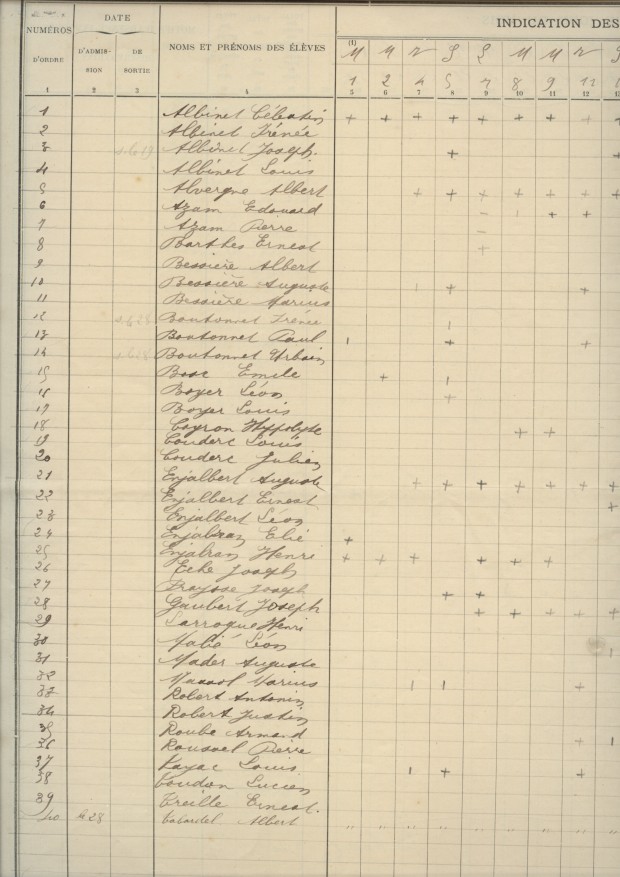 NUMÉROS D'ORDRE
DATE
D'ADMISSION
DE SORTIE
NOMS ET PRÉNOMS DES ÉLÈVES
INDICATION DES
(1) M M S S M M
1 2 4 5 7 8 9 11
1 2 3 4 5 6 7 8 9 10 11 12 13
1 Albinet Célestin + + + + + + + + +
2 Albinet Irénée
3 Albinet Joseph + +
4 Albinet Louis
5 Alvergne Albert + + + + + + +
6 Azam Edouard – ı + +
7 Azam Pierre –
8 Barthes Ernest +
9 Bessière Albert
10 Bessière Auguste ı + +
11 Bessière Marius
12 Boutonnet Irénée ı
13 Boutonnet Paul ı + +
14 Boutonnet Urbain
15 Bosc Emile + ı
16 Boyer Léon +
17 Boyer Louis
18 Cayron Hippolyte + +
19 Couderc Louis
20 Couderc Julien
21 Enjalbert Auguste + + + + + + +
22 Enjalbert Ernest +
23 Enjalbert Léon
24 Enjalran Elie +
25 Enjalran Henri + + + + + +
26 Eche Joseph
27 Fraysse Joseph + +
28 Gaubert Joseph + + + + +
29 Larroque Henri
30 Malié Léon
31 Mader Auguste ı
32 Massol Marius ı ı +
33 Robert Antonin
34 Robert Justin
35 Roube Armand
36 Roussel Pierre + ı
37 Louis ı + +
38 Lucien
39 Treille Ernest.
40 28 Albert " " " " " " " " "